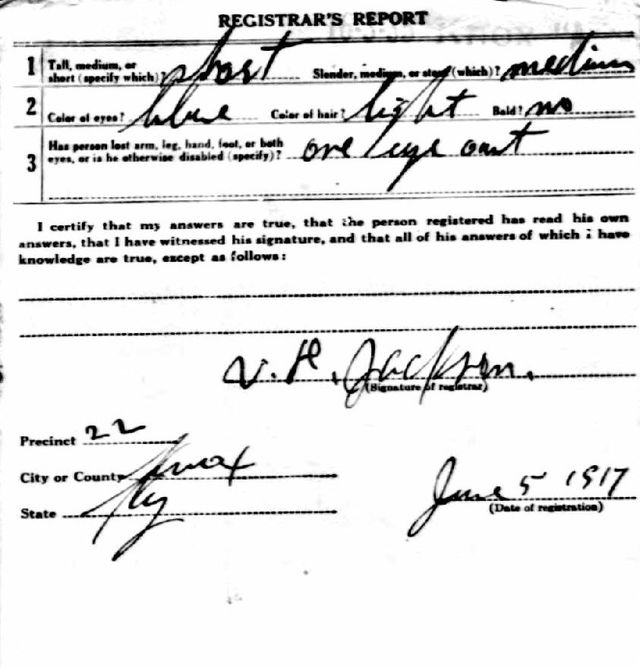 REGISTRAR'S REPORT
1 Tall, medium, or short (specify which)? short Slender, medium, or stout (which)? medium
2 Color of eyes? blue Color of hair? light Bald? no
3 Has person lost arm, leg, hand, foot, or both eyes, or is he otherwise disabled (specify)? one eye out
I certify that my answers are true, that the person registered has read his own
answers, that I have witnessed his signature, and that all of his answers of which i have
knowledge are true, except as follows:
V. H. Jackson.
(Signature of registrar)
Precinct 22
City or County Knox
State Ky
June 5 1917
(Date of registration)